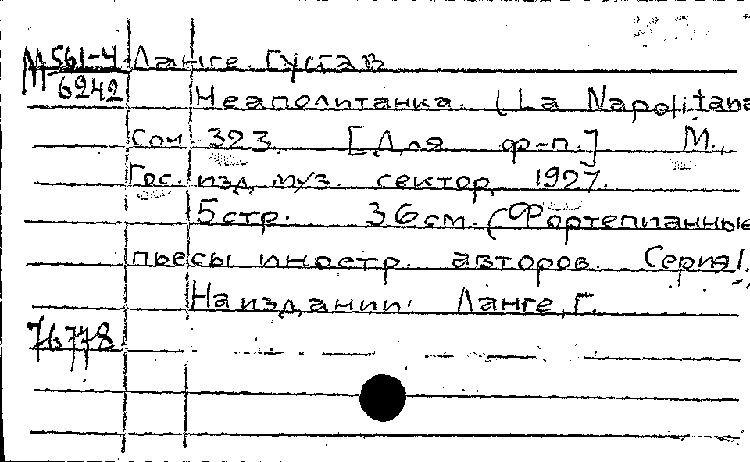 М 561-4 Ланге. Густав
6242
Неаполитанка. (La Napolitana
Соч. 323. [Для ф-п.] М.,
Гос. изд. муз. сектор, 1927.
5 стр. 36 см. (Фортепианные
пьесы иностр. авторов. Серия I.
На издании: Ланге, Г.
76778